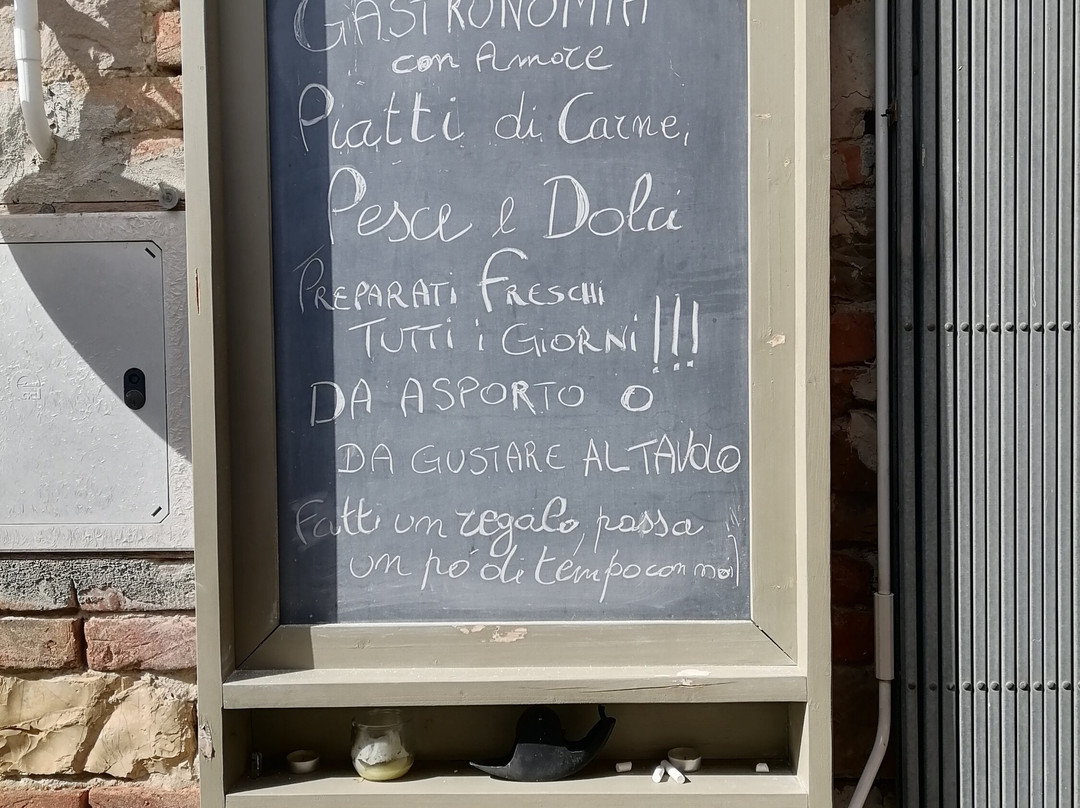 GASTRONOMIA
con Amore
Piatti di Carne,
Pesce e Dolci
PREPARATI FRESCHI
TUTTI i GIORNI!!!
DA ASPORTO O
DA GUSTARE AL TAVOLO
Fatti un regalo, passa
un pò di tempo con noi